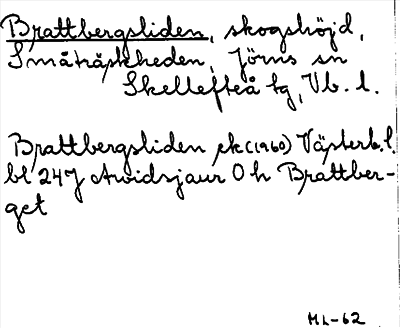 Brattbergsliden, skogshöjd,
Småträskheden, Jörns sn
Skellefteå tg, Vb. l.
Brattbergsliden ek (1960) Västerb. l.
bl 24J Arvidsjaur O h Brattber-
get
ML-62